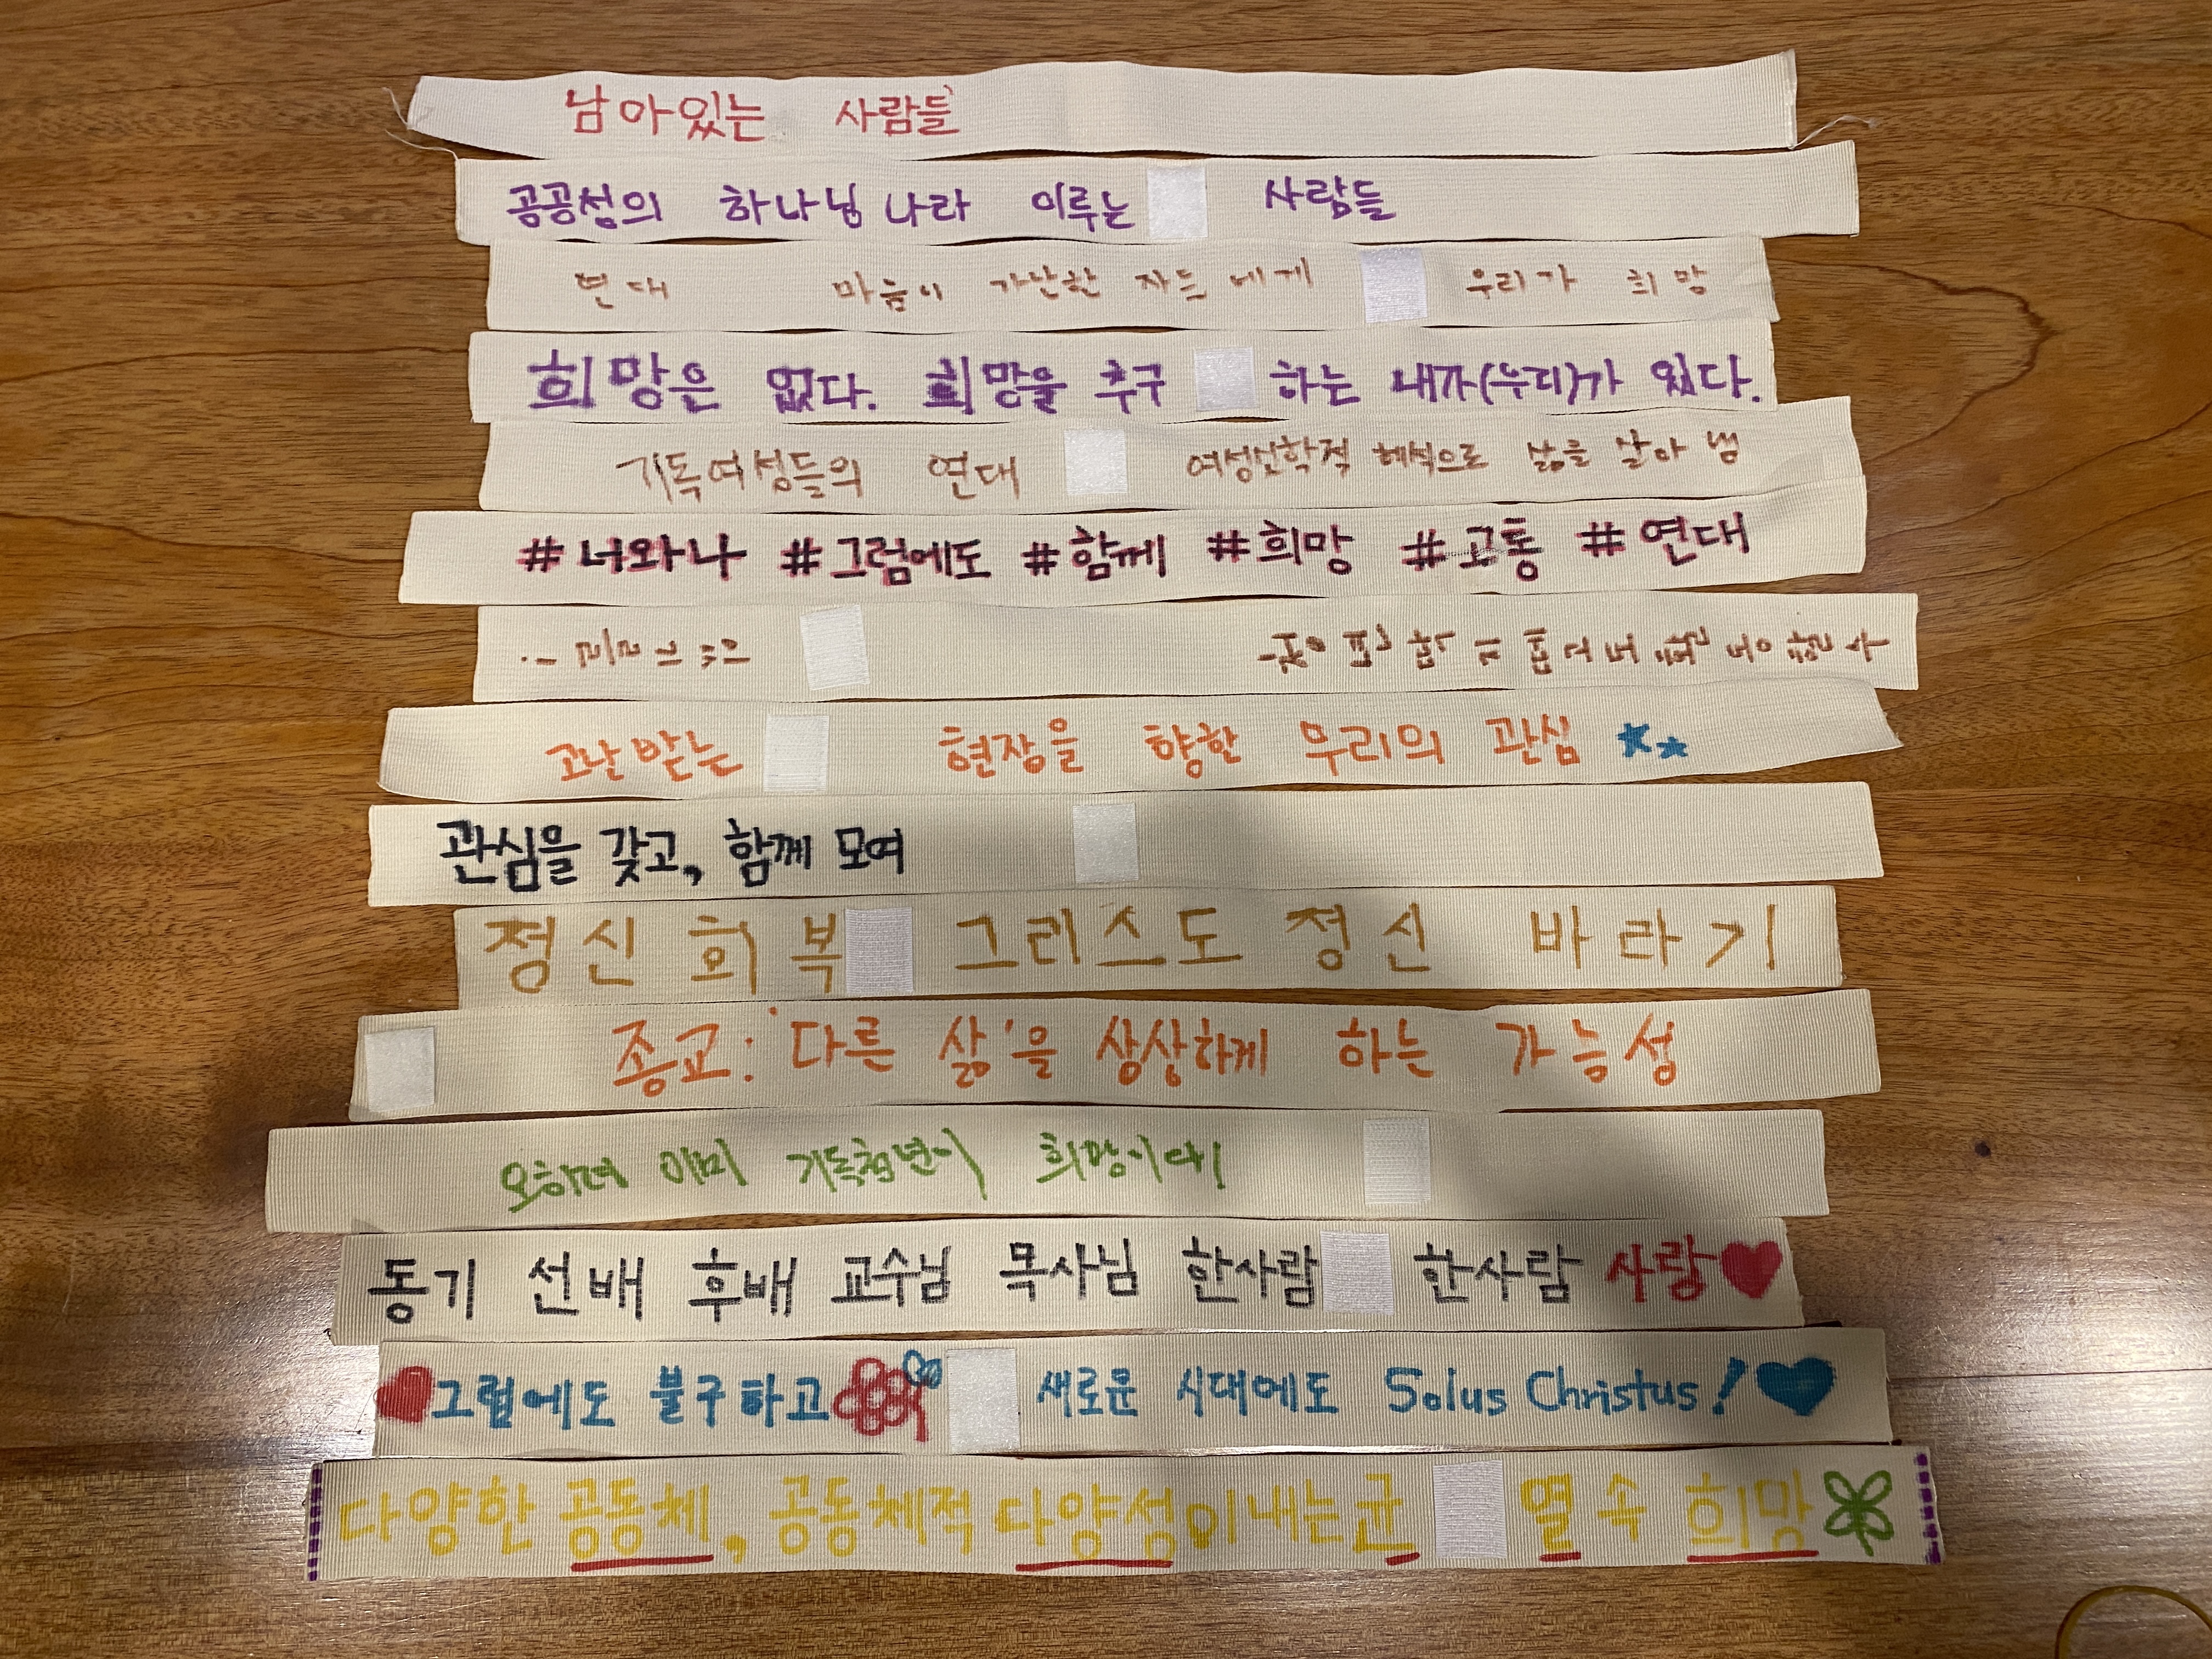 남아있는 사람들
공공성의 하나님 나라 이루는 사람들
연대 마음이 가난한 자들에게 우리가 희망
희망은 없다. 희망을 추구하는 내가(우리)가 있다.
기독여성들의 연대 여성신학적 해석으로 삶을 살아 냄
#너와나 #그럼에도 #함께 #희망 #고통 #연대
고난받는 현장을 향한 우리의 관심
관심을 갖고, 함께 모여
정신 회복 그리스도 정신 바라기
종교: '다른 삶'을 상상하게 하는 가능성
오히려 이미 기독청년이 희망이다!
동기 선배 후배 교수님 목사님 한사람 한사람 사랑
그럼에도 불구하고 새로운 시대에도 Solus Christus!
다양한 공동체, 공동체적 다양성이 내는 균열 속 희망